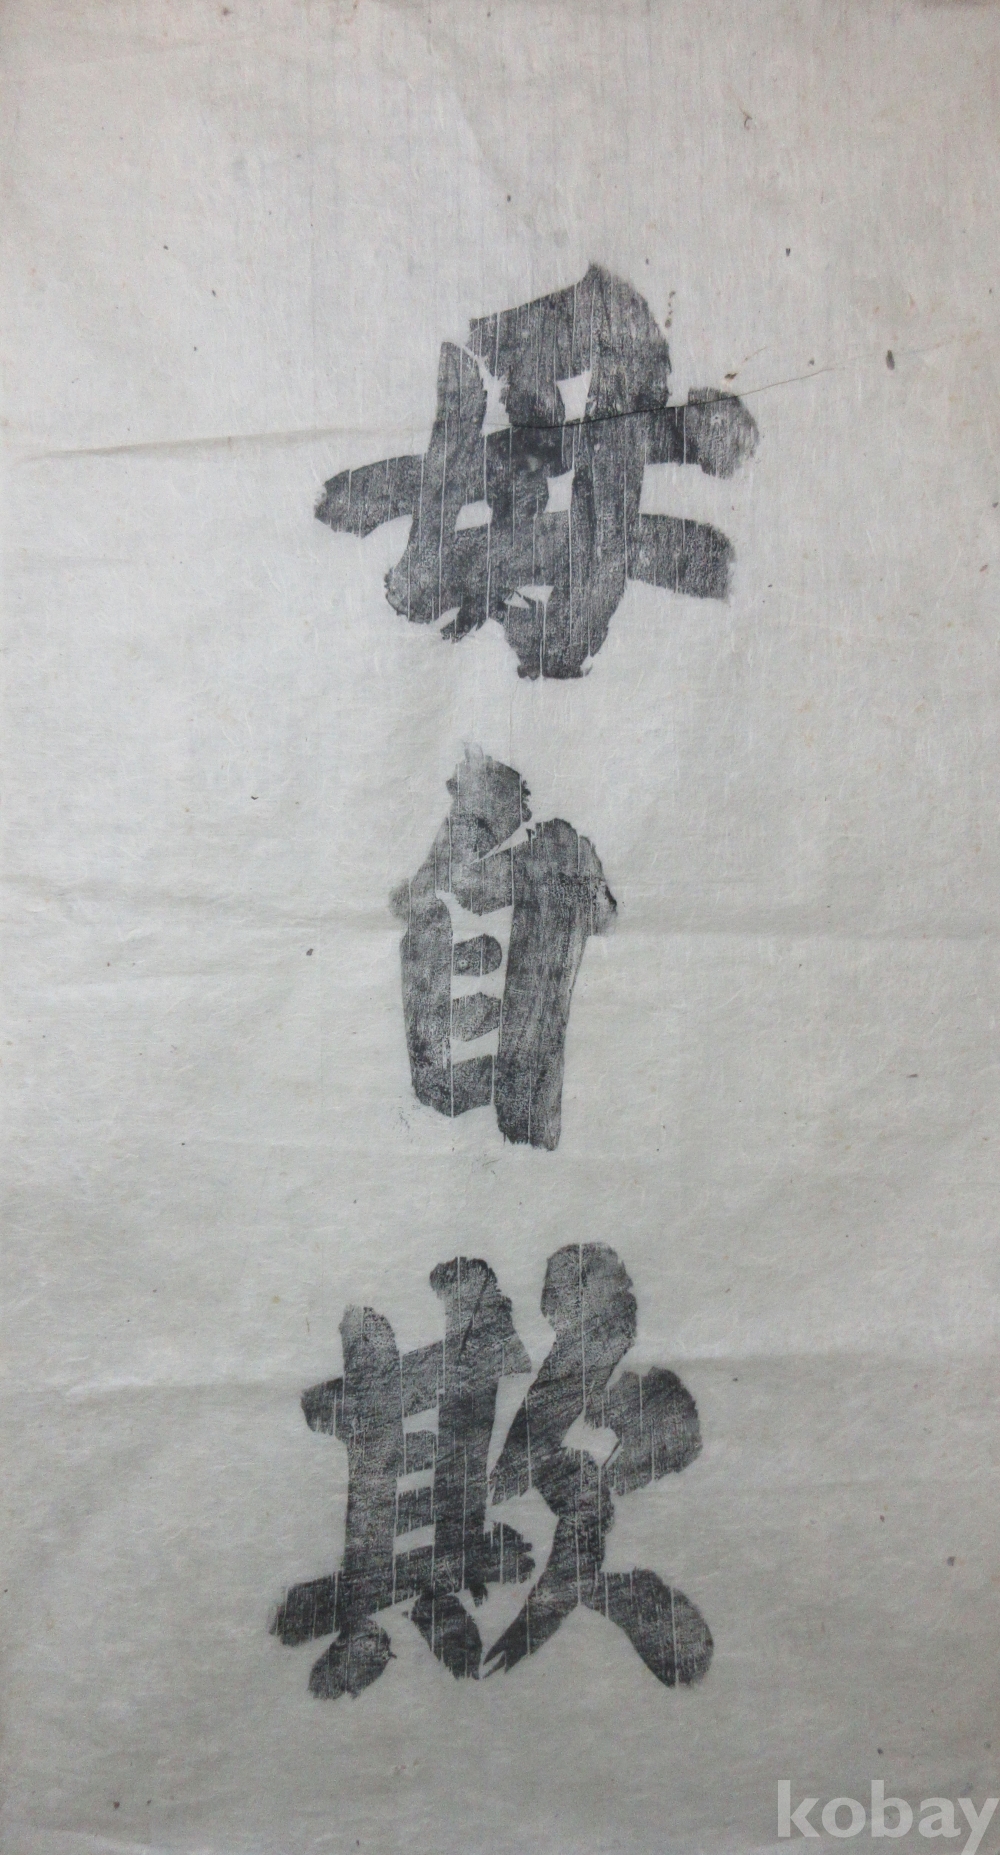 毋自欺
kobay